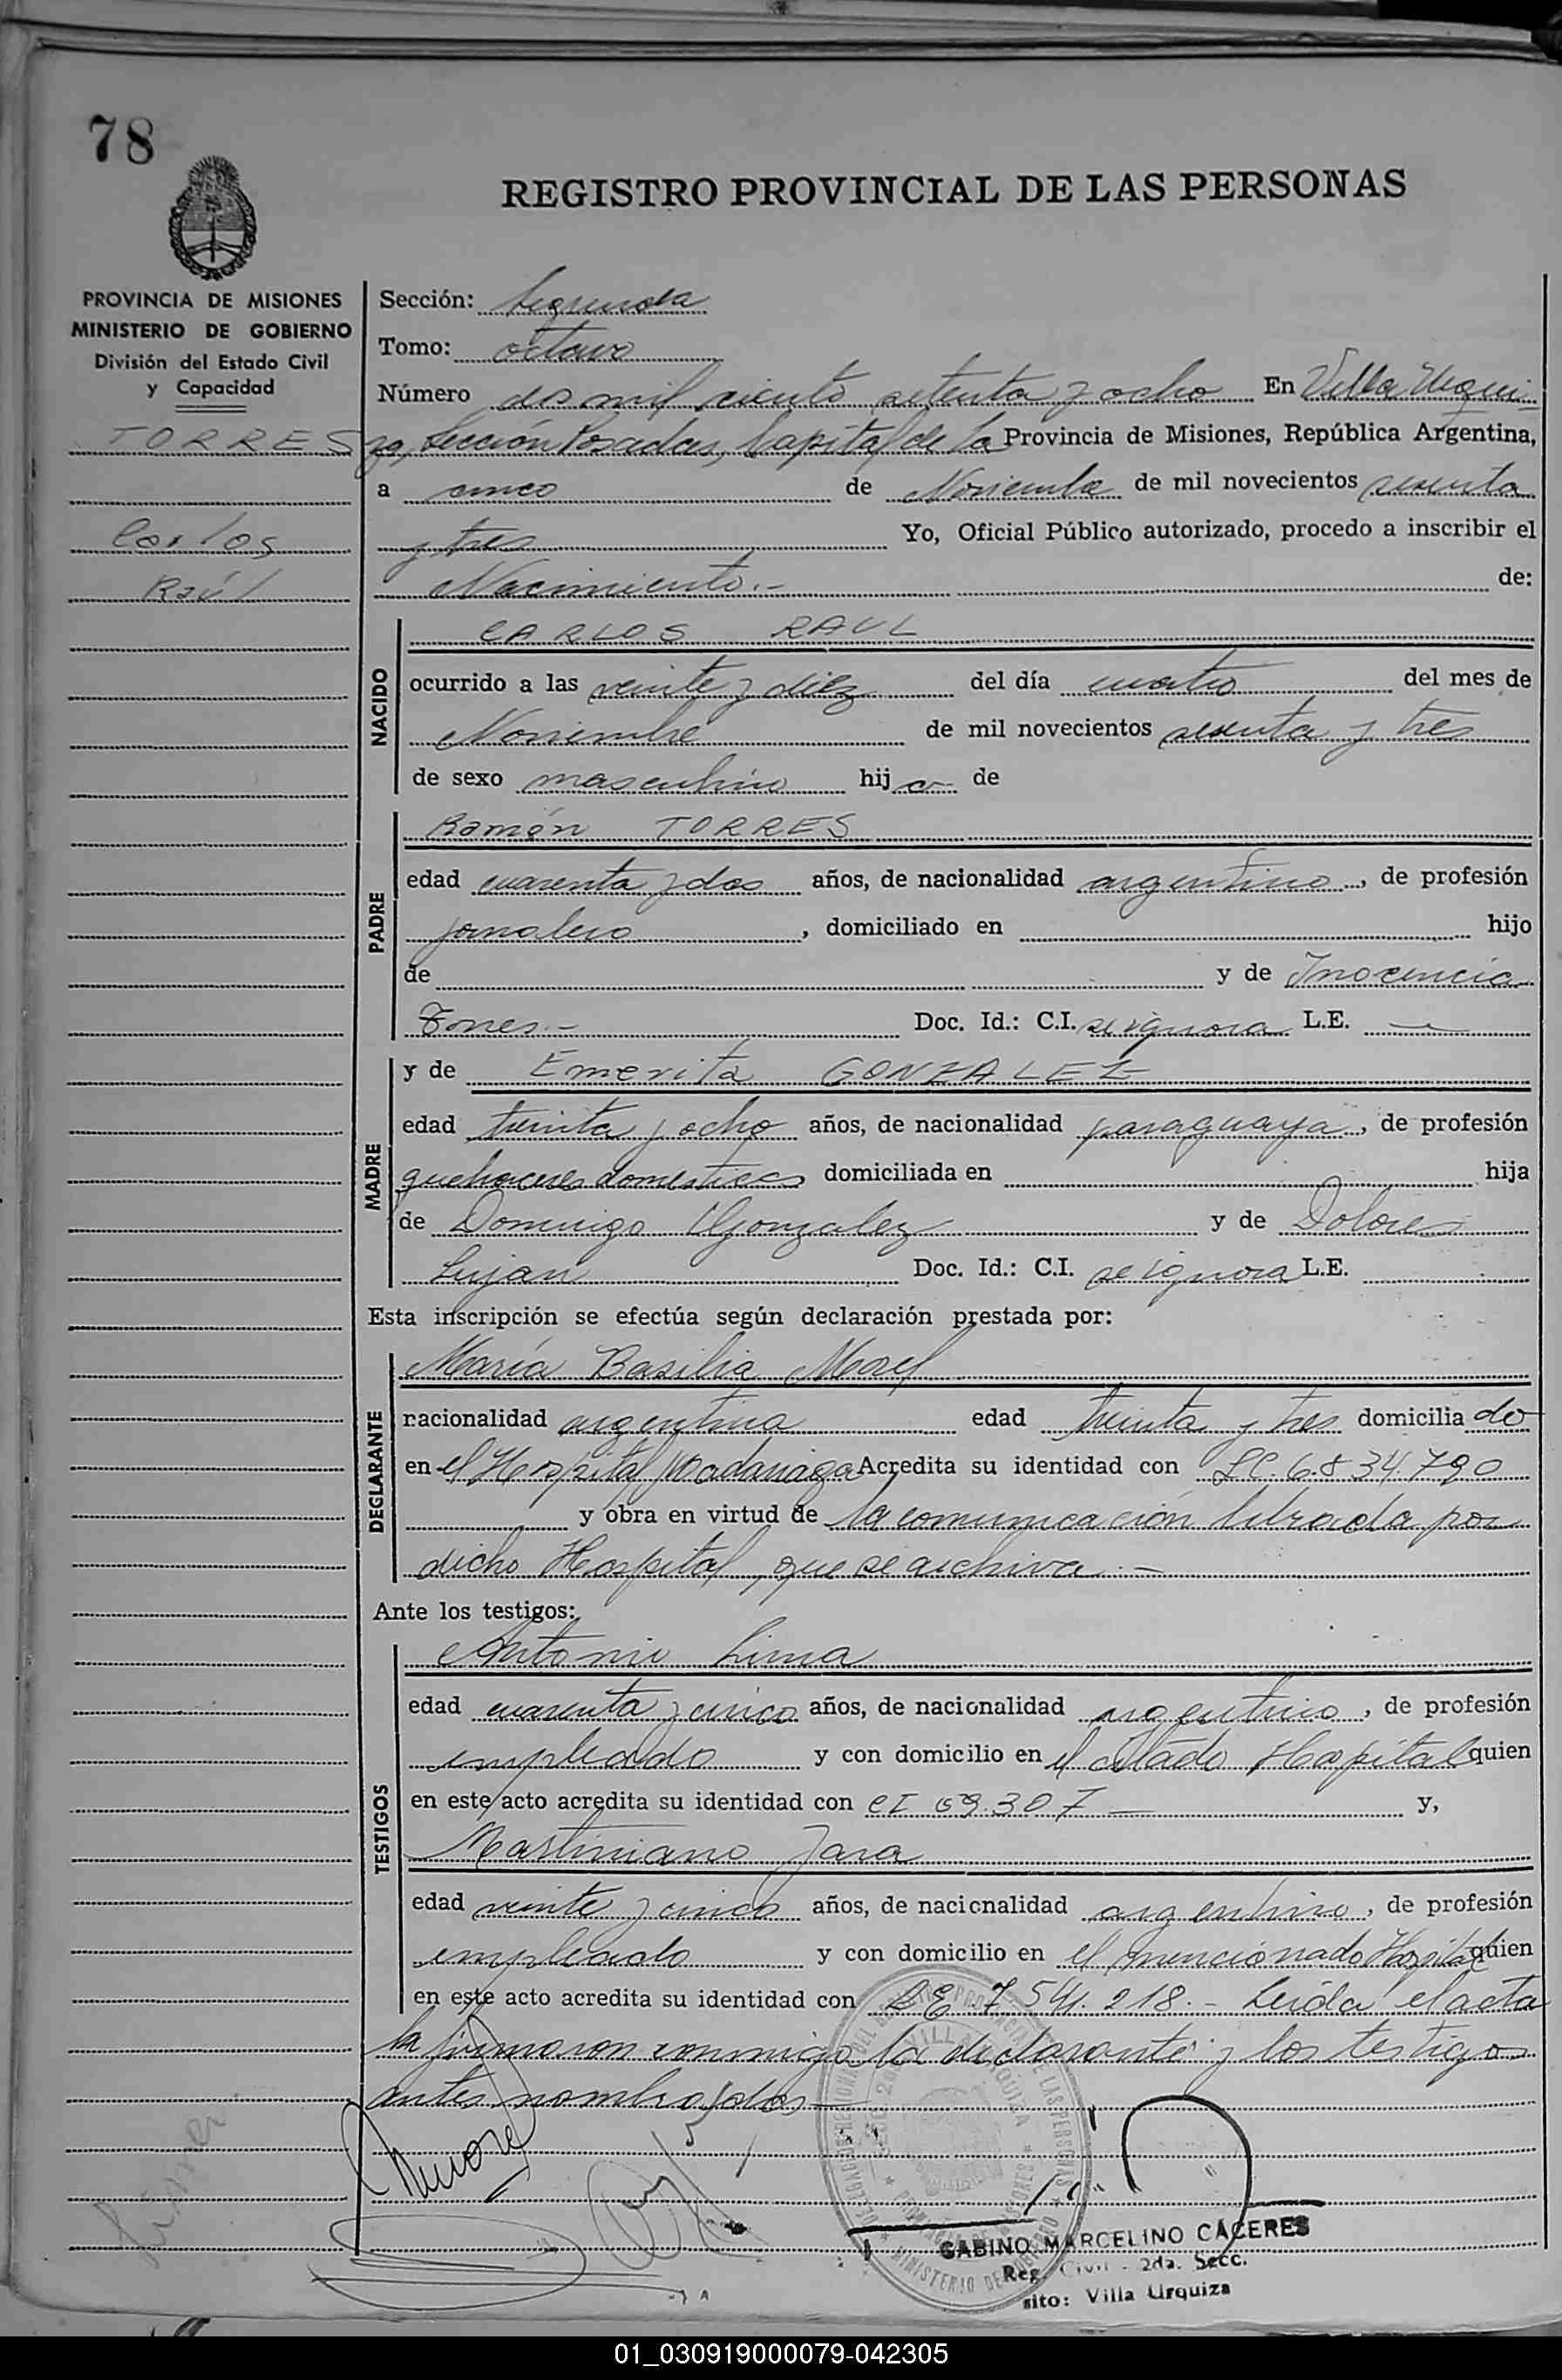 78
REGISTRO PROVINCIAL DE LAS PERSONAS
PROVINCIA DE MISIONES
MINISTERIO DE GOBIERNO
División del Estado Civil
y Capacidad
TORRES
Carlos
Raúl
Sección: Segunda
Tomo: octavo
Número dos mil ciento setenta y ocho En Villa Urqui-
za, Sección Posadas, Capital de la Provincia de Misiones, República Argentina,
a cinco de Noviembre de mil novecientos sesenta
y tres Yo, Oficial Público autorizado, procedo a inscribir el
Nacimiento.- de:
NACIDO
CARLOS RAUL
ocurrido a las veinte y diez del día cuatro del mes de
Noviembre de mil novecientos sesenta y tres
de sexo masculino hijo de
PADRE
Ramón TORRES
edad cuarenta y dos años, de nacionalidad argentino, de profesión
jornalero, domiciliado en hijo
de y de Inocencia
Torres.- Doc. Id.: C.I. se ignora L.E. —
MADRE
y de Emerita GONZALEZ
edad treinta y ocho años, de nacionalidad paraguaya, de profesión
quehaceres domesticos domiciliada en hija
de Domingo Gonzalez y de Dolores
Lujan Doc. Id.: C.I. se ignora L.E.
Esta inscripción se efectúa según declaración prestada por:
DEGLARANTE
María Basilia Morel
nacionalidad argentina edad treinta y tres domiciliado
en el Hospital Madariaga Acredita su identidad con LC. 6.834.790
y obra en virtud de la comunicación librada por
dicho Hospital, que se archiva.-
Ante los testigos:
TESTIGOS
Antonio Lima
edad cuarenta y cinco años, de nacionalidad argentino, de profesión
empleado y con domicilio en el citado Hospital quien
en este acto acredita su identidad con CI 69.307 — y,
Martiniano Jara
edad veinte y cinco años, de nacionalidad argentino, de profesión
empleado y con domicilio en el mencionado Hospital quien
en este acto acredita su identidad con LE 7.541.218.- Leída el acta
la firmaron conmigo la declarante y los testigos
antes nombrados—
GABINO MARCELINO CÁCERES
Reg. Civil - 2da. Secc.
sito: Villa Urquiza
01_030919000079-042305